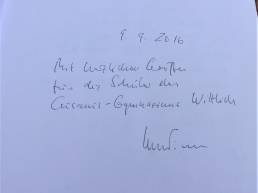 9 9. 2016
Mit herzlichen Grüßen
für die Schüler des
Cusanus-Gymnasiums Wittlich